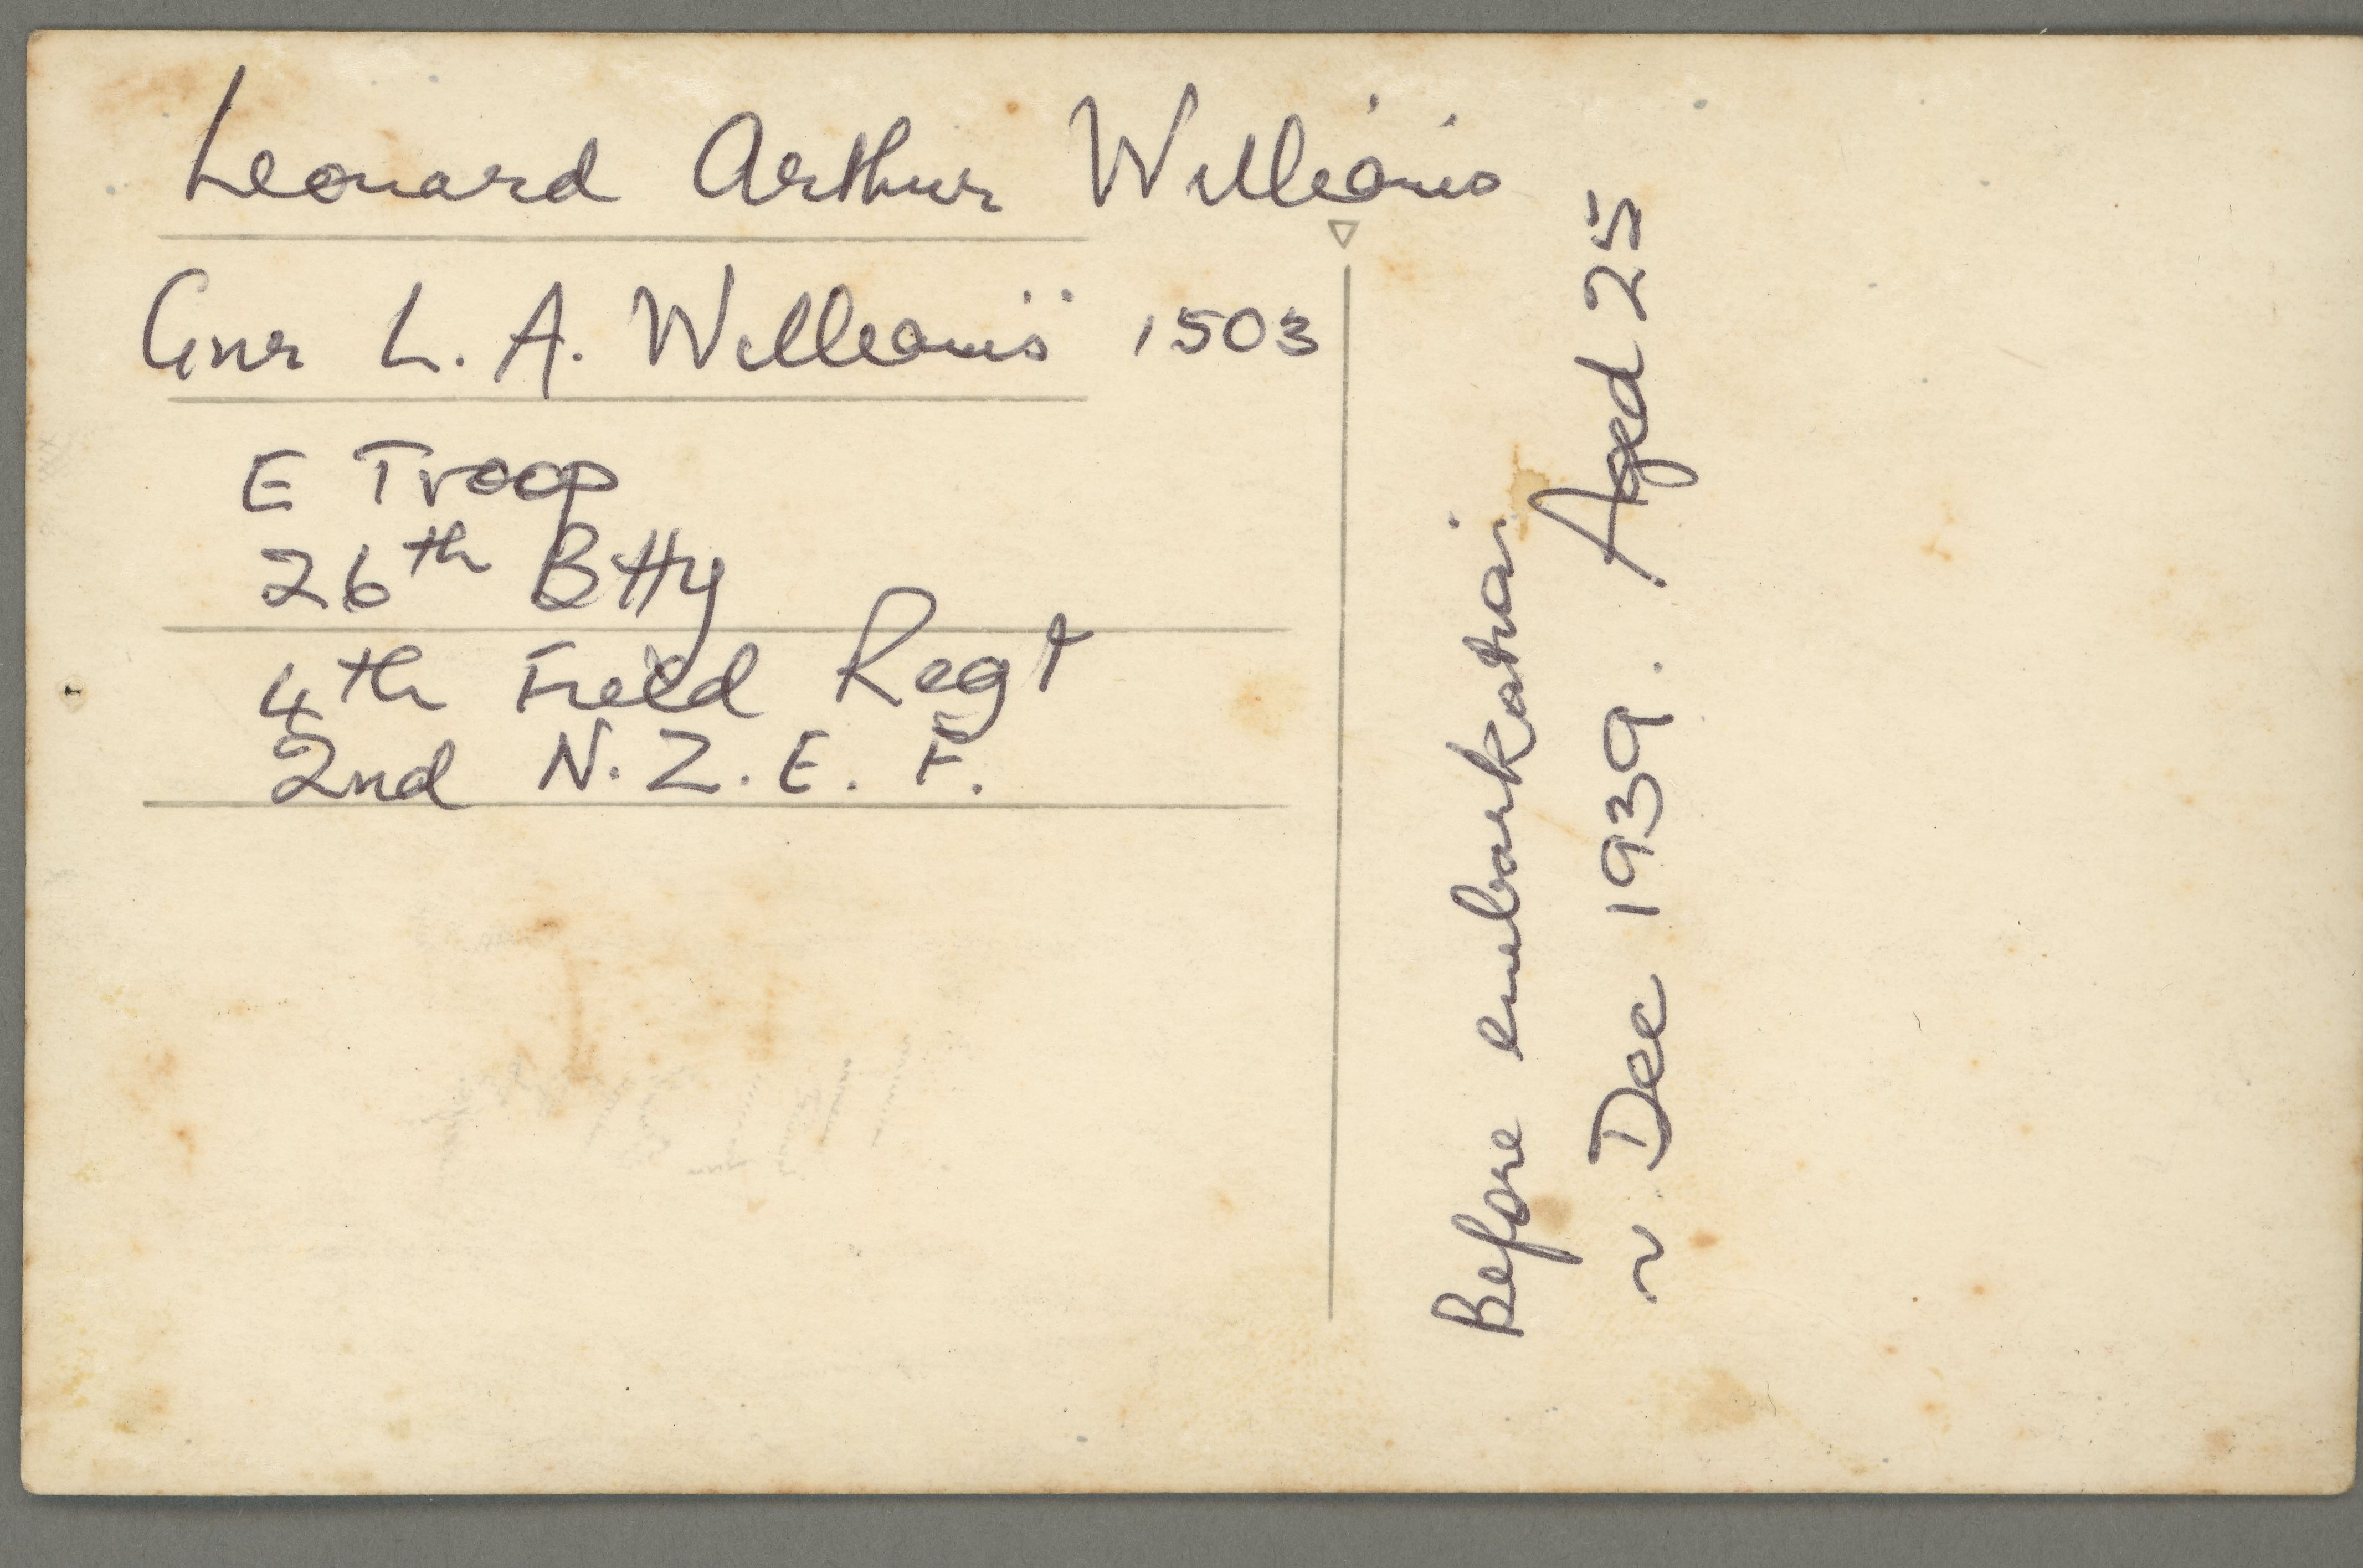 Leonard Arthur Williams
Gnr L. A. Williams 1503
E Troop
26th Btty
4th Field Regt
2nd N. Z. E. F.
Before embarkation
~ Dec 1939. Aged 25